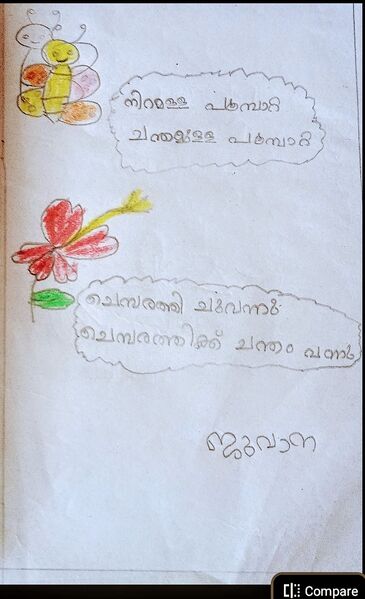 നിറമുള്ള പൂമ്പാറ്റ
ചന്തമുള്ള പൂമ്പാറ്റ
ചെമ്പരത്തി ചുവന്നു
ചെമ്പരത്തിക്ക് ചന്തം വന്നു
Compare